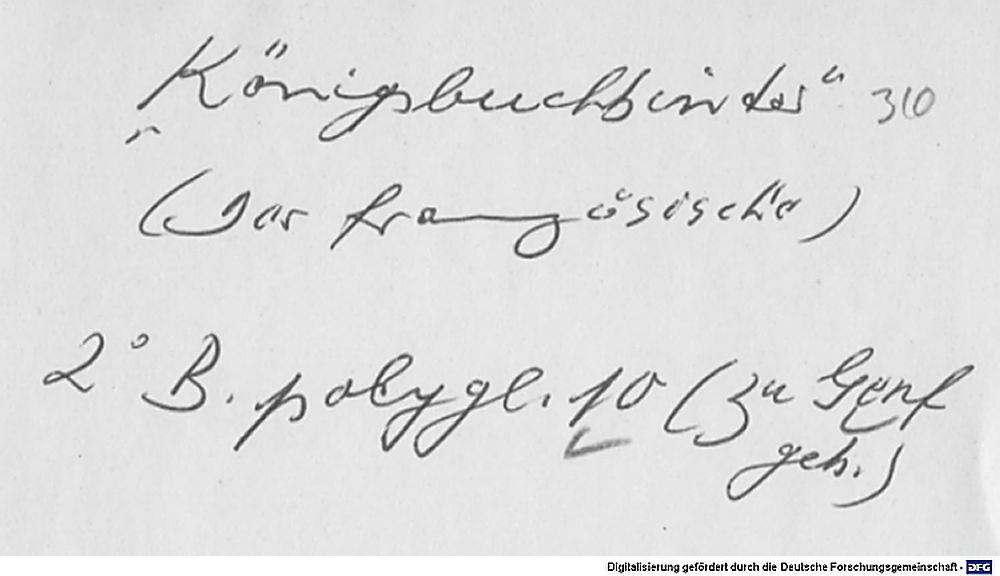 "Königsbuchbinder" 310
(Der französische)
2° B. polygl. 10 (zu Genf
geb.)
Digitalisierung gefördert durch die Deutsche Forschungsgemeinschaft - DFG